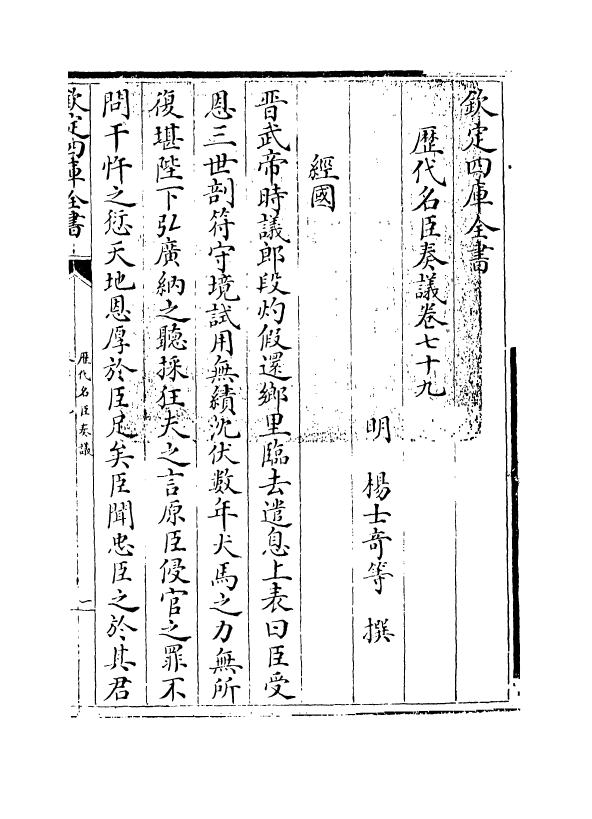 欽定四庫全書
歴代名臣奏議卷七十九
明 楊士奇等 撰
經國
晋武帝時議郎段灼假還鄉里臨去遣息上表曰臣受
恩三世剖符守境試用無績沈伏數年犬馬之力無所
復堪陛下弘廣納之聽採狂夫之言原臣侵官之罪不
問干忤之愆天地恩厚於臣足矣臣聞忠臣之於其君
欽定四庫全書
歴代名臣奏議
一